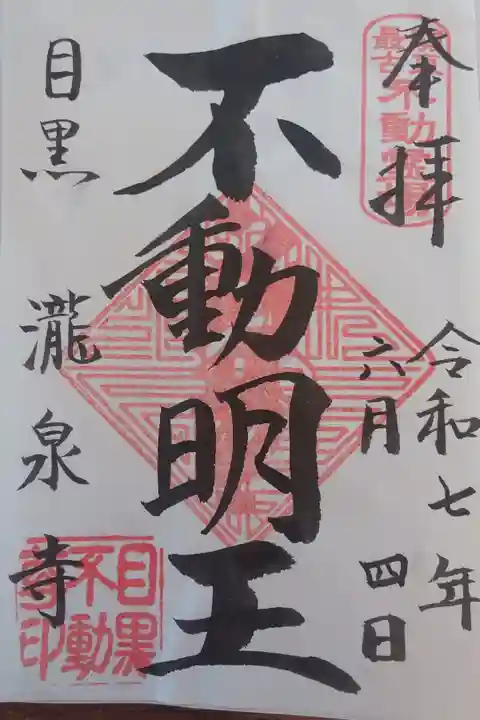 奉拝
最古不動霊場
令和七年
六月四日
不動明王
目黒瀧泉寺
目黒
不動
寺印